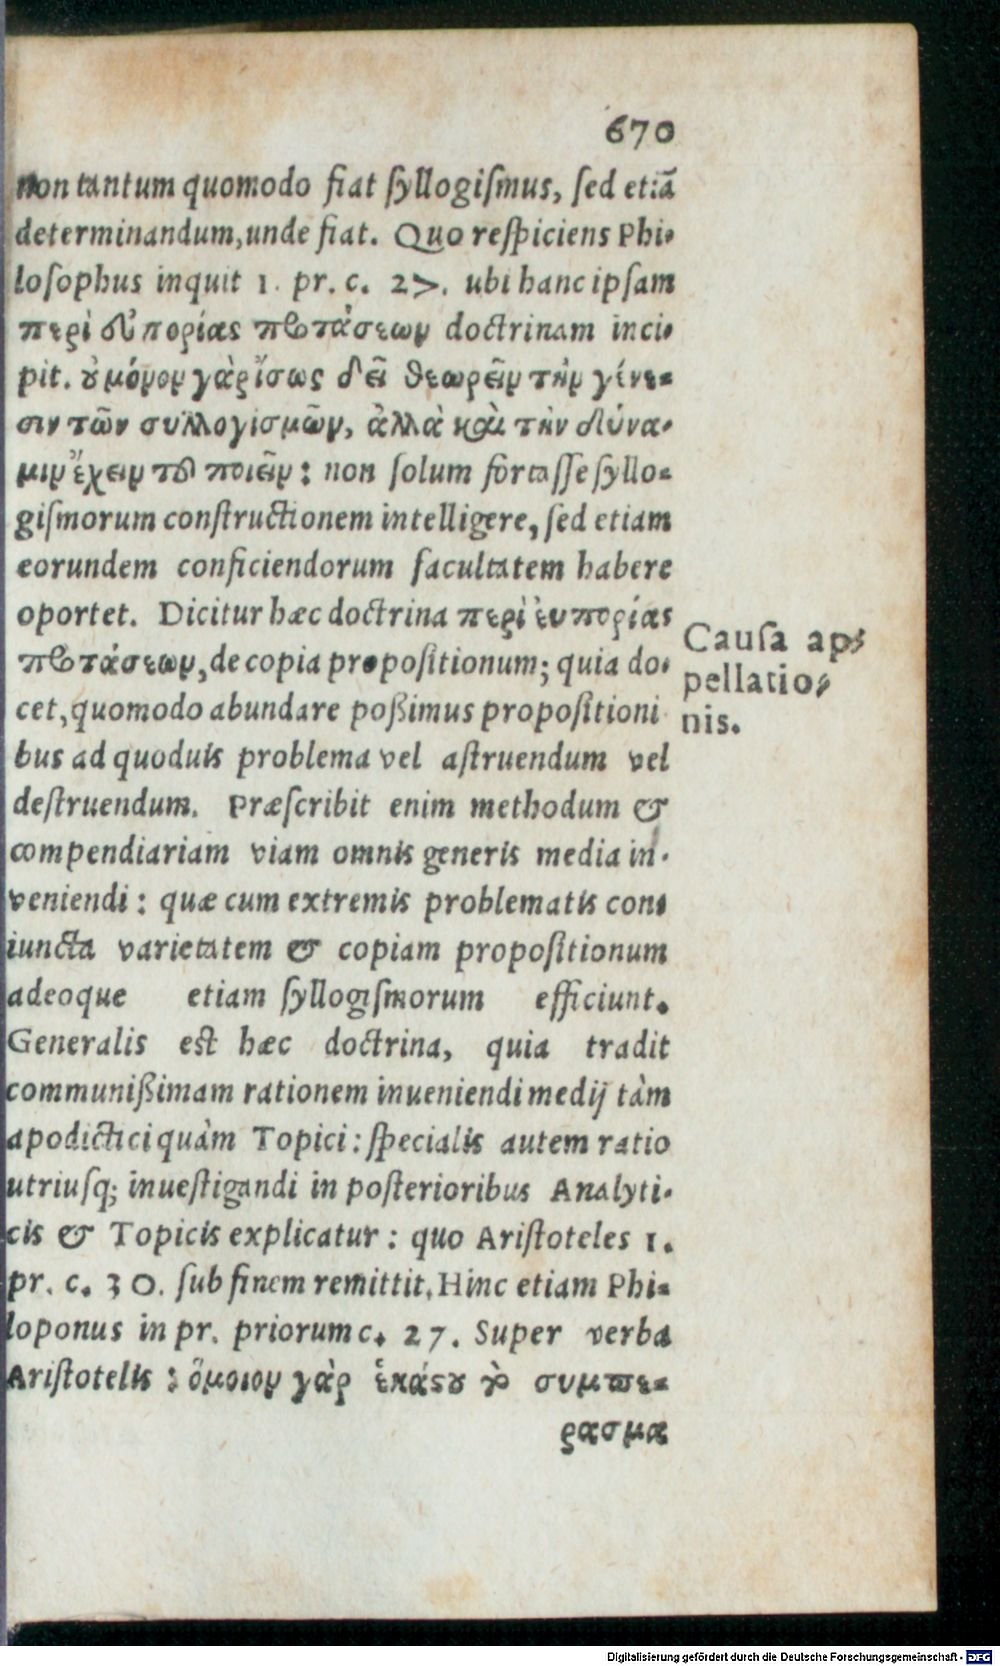 670
non tantum quomodo fiat ſyllogiſmus, ſed etiã
determinandum, unde fiat. Quo reſpiciens Phi-
loſophus inquit 1. pr. c. 27. ubi hanc ipſam
περὶ εὐπορίας προτάσεωμ doctrinam inci-
pit. ȣ μόνομ γὰρ ἴσως δεῖ θεωρεῖμ τὴμ γένε-
σιν τῶν συλλογισμῶμ, ἀλλὰ καὶ τὴν δύνα-
μιμ ἔχειμ τȣ ποιεῖμ: non ſolum fortaſſe ſyllo-
giſmorum conſtructionem intelligere, ſed etiam
eorundem conficiendorum facultatem habere
oportet. Dicitur hæc doctrina περὶ εὐπορίας
προτάσεωμ, de copia propoſitionum; quia do-
cet, quomodo abundare poßimus propoſitioni
bus ad quoduis problema vel aſtruendum vel
deſtruendum. Præſcribit enim methodum &
compendiariam viam omnis generis media in-
veniendi: quæ cum extremis problematis con-
iuncta varietatem & copiam propoſitionum
adeoque etiam ſyllogiſmorum efficiunt.
Generalis est hæc doctrina, quia tradit
communißimam rationem inueniendi medij tàm
apodictici quàm Topici: ſpecialis autem ratio
utriuſq; inueſtigandi in poſterioribus Analyti-
cis & Topicis explicatur: quo Ariſtoteles 1.
pr. c. 30. ſub finem remittit. Hinc etiam Phi-
loponus in pr. priorum c. 27. Super verba
Ariſtotelis: ὅμοιομ γὰρ ἑκάϛȣ τὸ συμπε-
ρασμα
Cauſa ap-
pellatio-
nis.
Digitalisierung gefördert durch die Deutsche Forschungsgemeinschaft - DFG